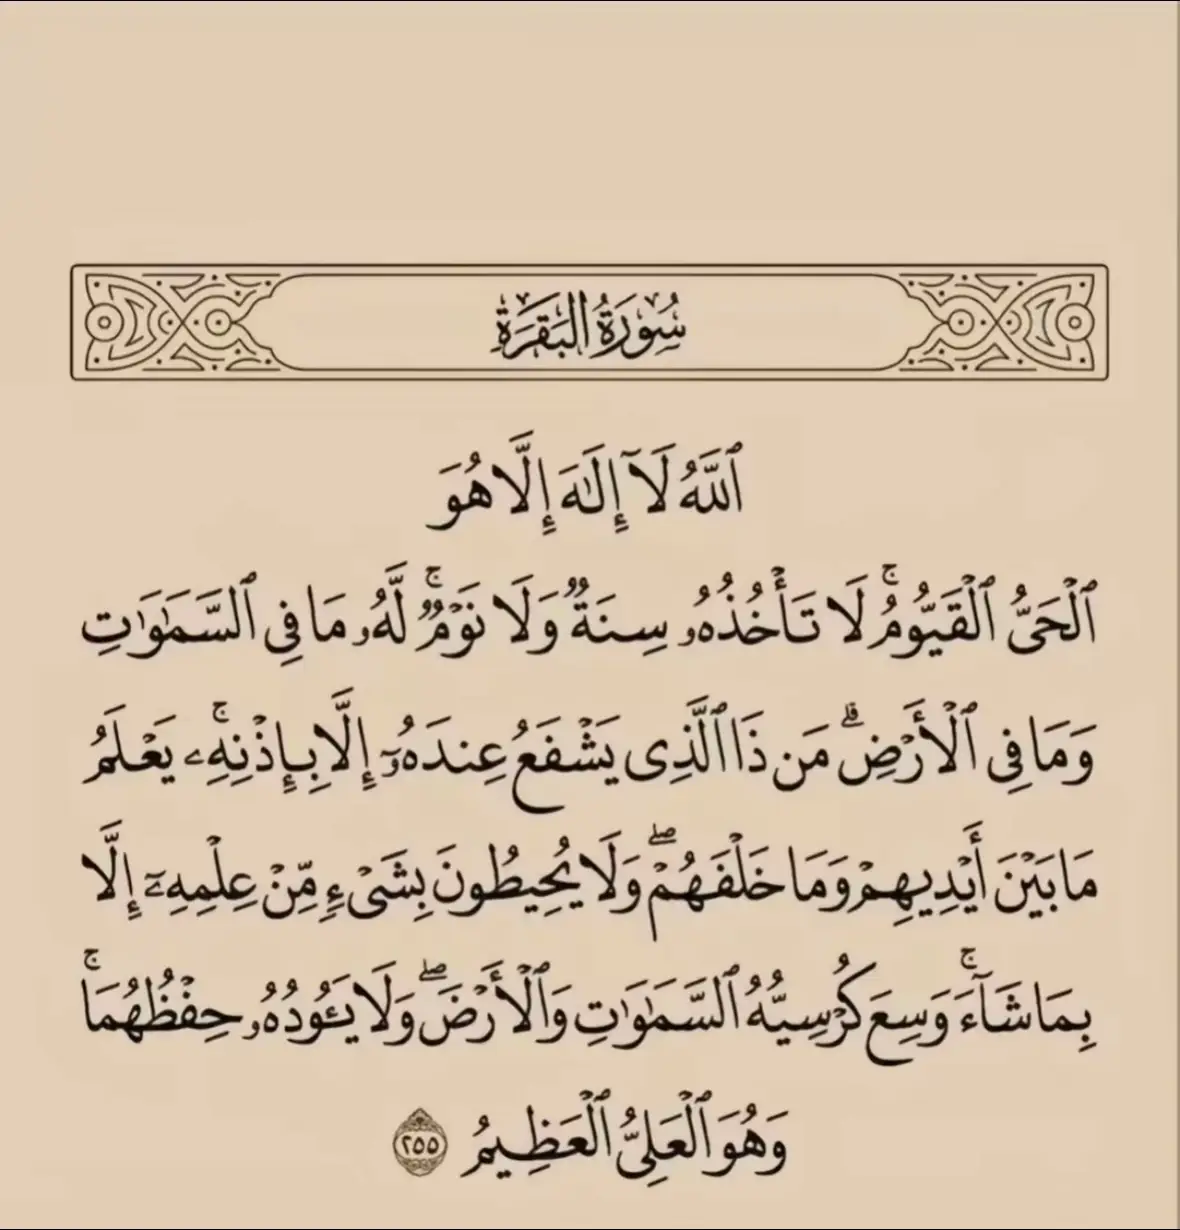 سُورَةُ البَقَرَةِ
ٱللَّهُ لَآ إِلَـٰهَ إِلَّا هُوَ
ٱلْحَىُّ ٱلْقَيُّومُ ۚ لَا تَأْخُذُهُۥ سِنَةٌ وَلَا نَوْمٌ ۚ لَّهُۥ مَا فِى ٱلسَّمَـٰوَٰتِ
وَمَا فِى ٱلْأَرْضِ ۗ مَن ذَا ٱلَّذِى يَشْفَعُ عِندَهُۥٓ إِلَّا بِإِذْنِهِۦ ۚ يَعْلَمُ
مَا بَيْنَ أَيْدِيهِمْ وَمَا خَلْفَهُمْ ۖ وَلَا يُحِيطُونَ بِشَىْءٍ مِّنْ عِلْمِهِۦٓ إِلَّا
بِمَا شَآءَ ۚ وَسِعَ كُرْسِيُّهُ ٱلسَّمَـٰوَٰتِ وَٱلْأَرْضَ ۖ وَلَا يَـُٔودُهُۥ حِفْظُهُمَا ۚ
وَهُوَ ٱلْعَلِىُّ ٱلْعَظِيمُ ٢٥٥